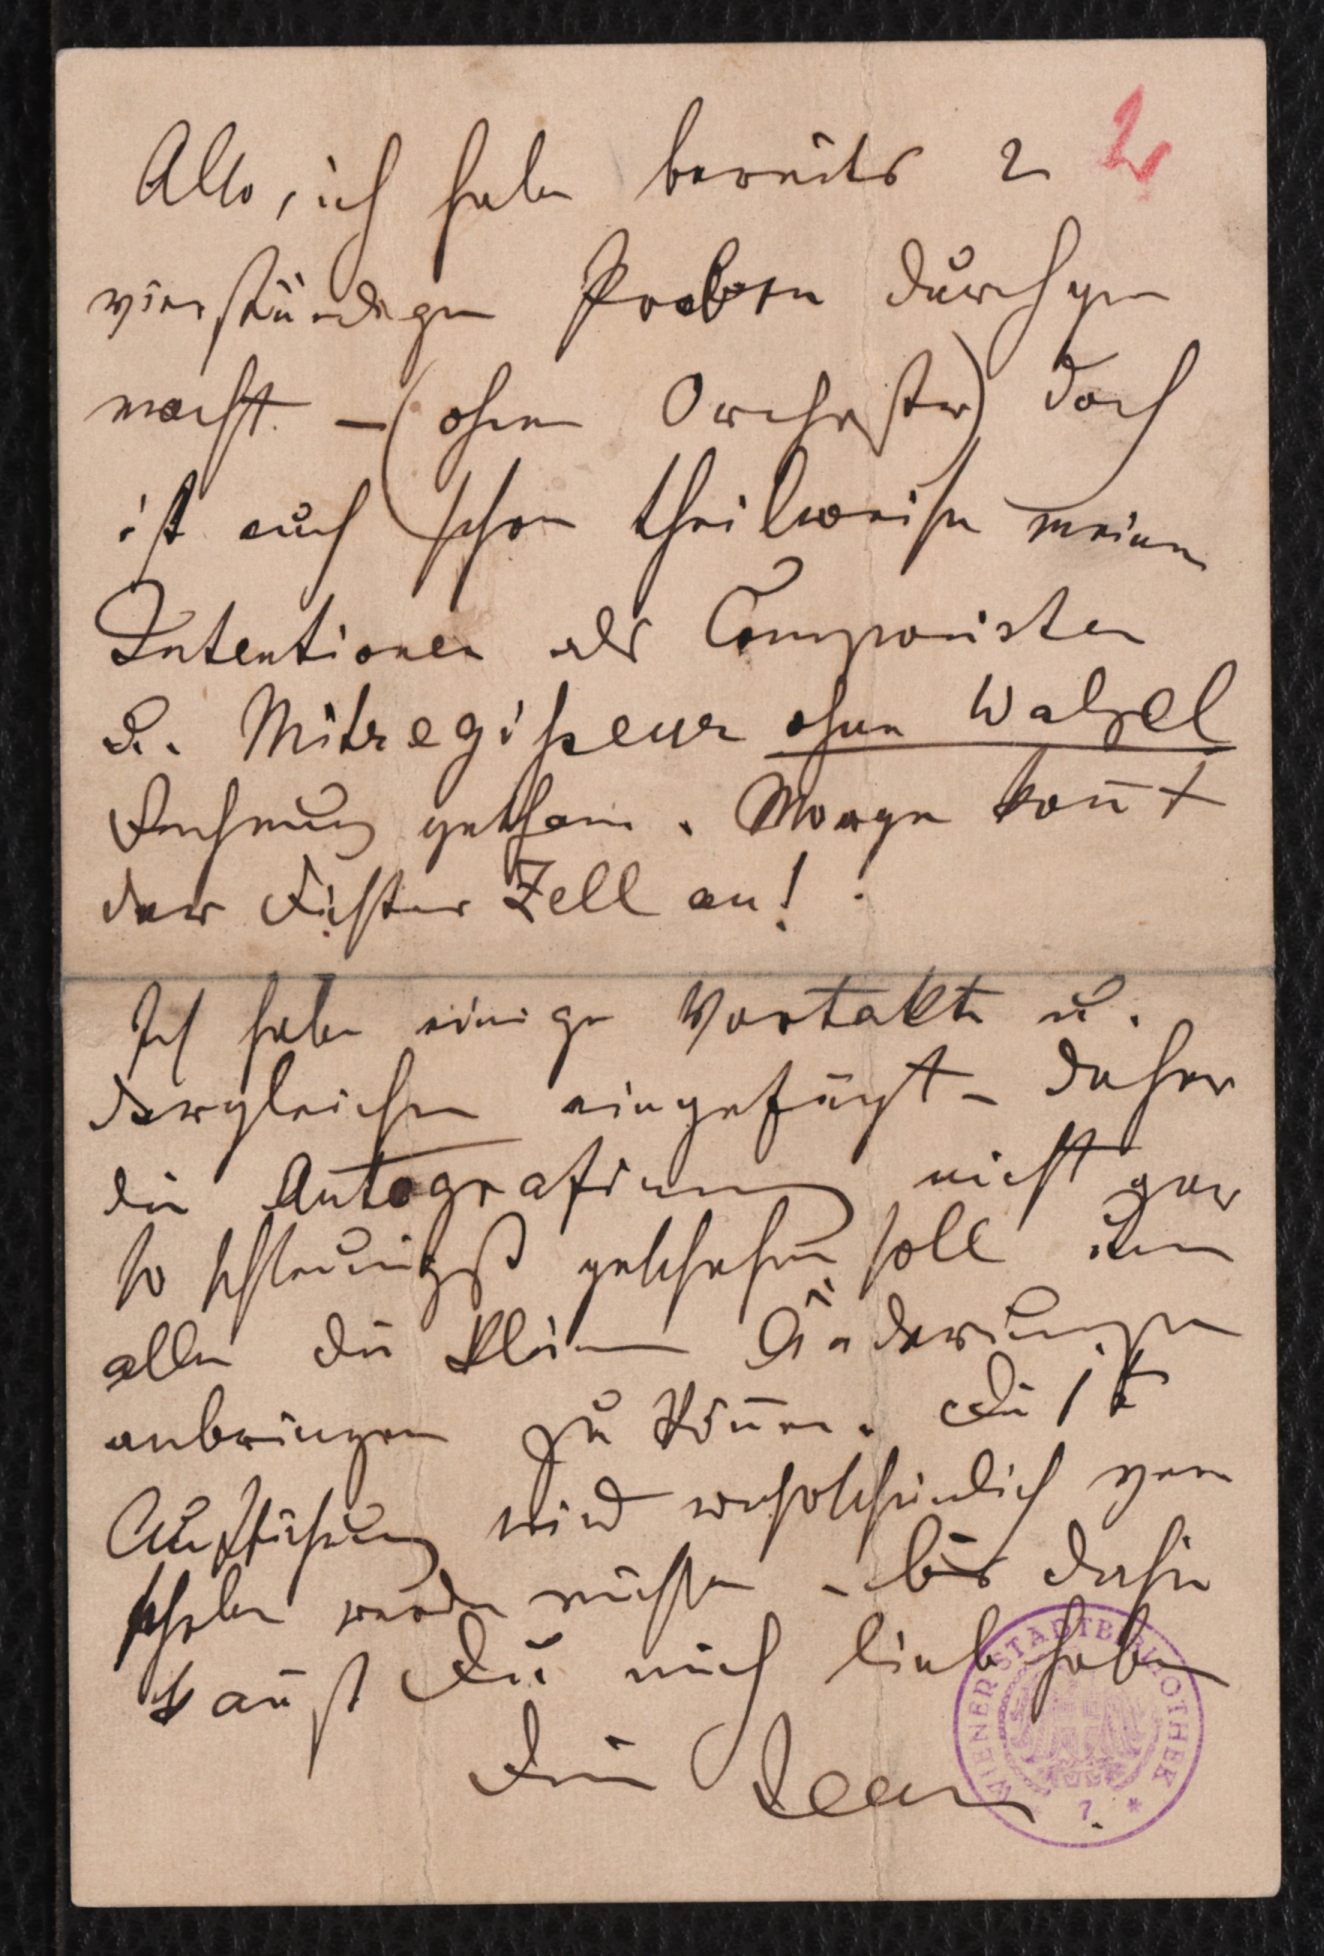 2
Also, ich habe bereits 2
vierstündige Proben durchge
macht. – (ohne Orchester) doch
ist auch schon theilweise meinen
Intentionen als Componisten
u. Mitregisseur ohne Walzel
Rechnung gethan. Morgen kom̄t
der Dichter Zell an!
Ich habe einige Vortakte u.
dergleichen eingefügt – daher
die Autografirung nicht gar
so schleunigst geschehen soll um
alle die kleinen Änderungen
anbringen zu kön̄en. Die 1te
Aufführung wird wahrscheinlich ver
schoben werden müssen – bis dahin
kan̄st Du mich lieb haben
Dein Jean
WIENER STADTBIBLIOTHEK
* 7. *